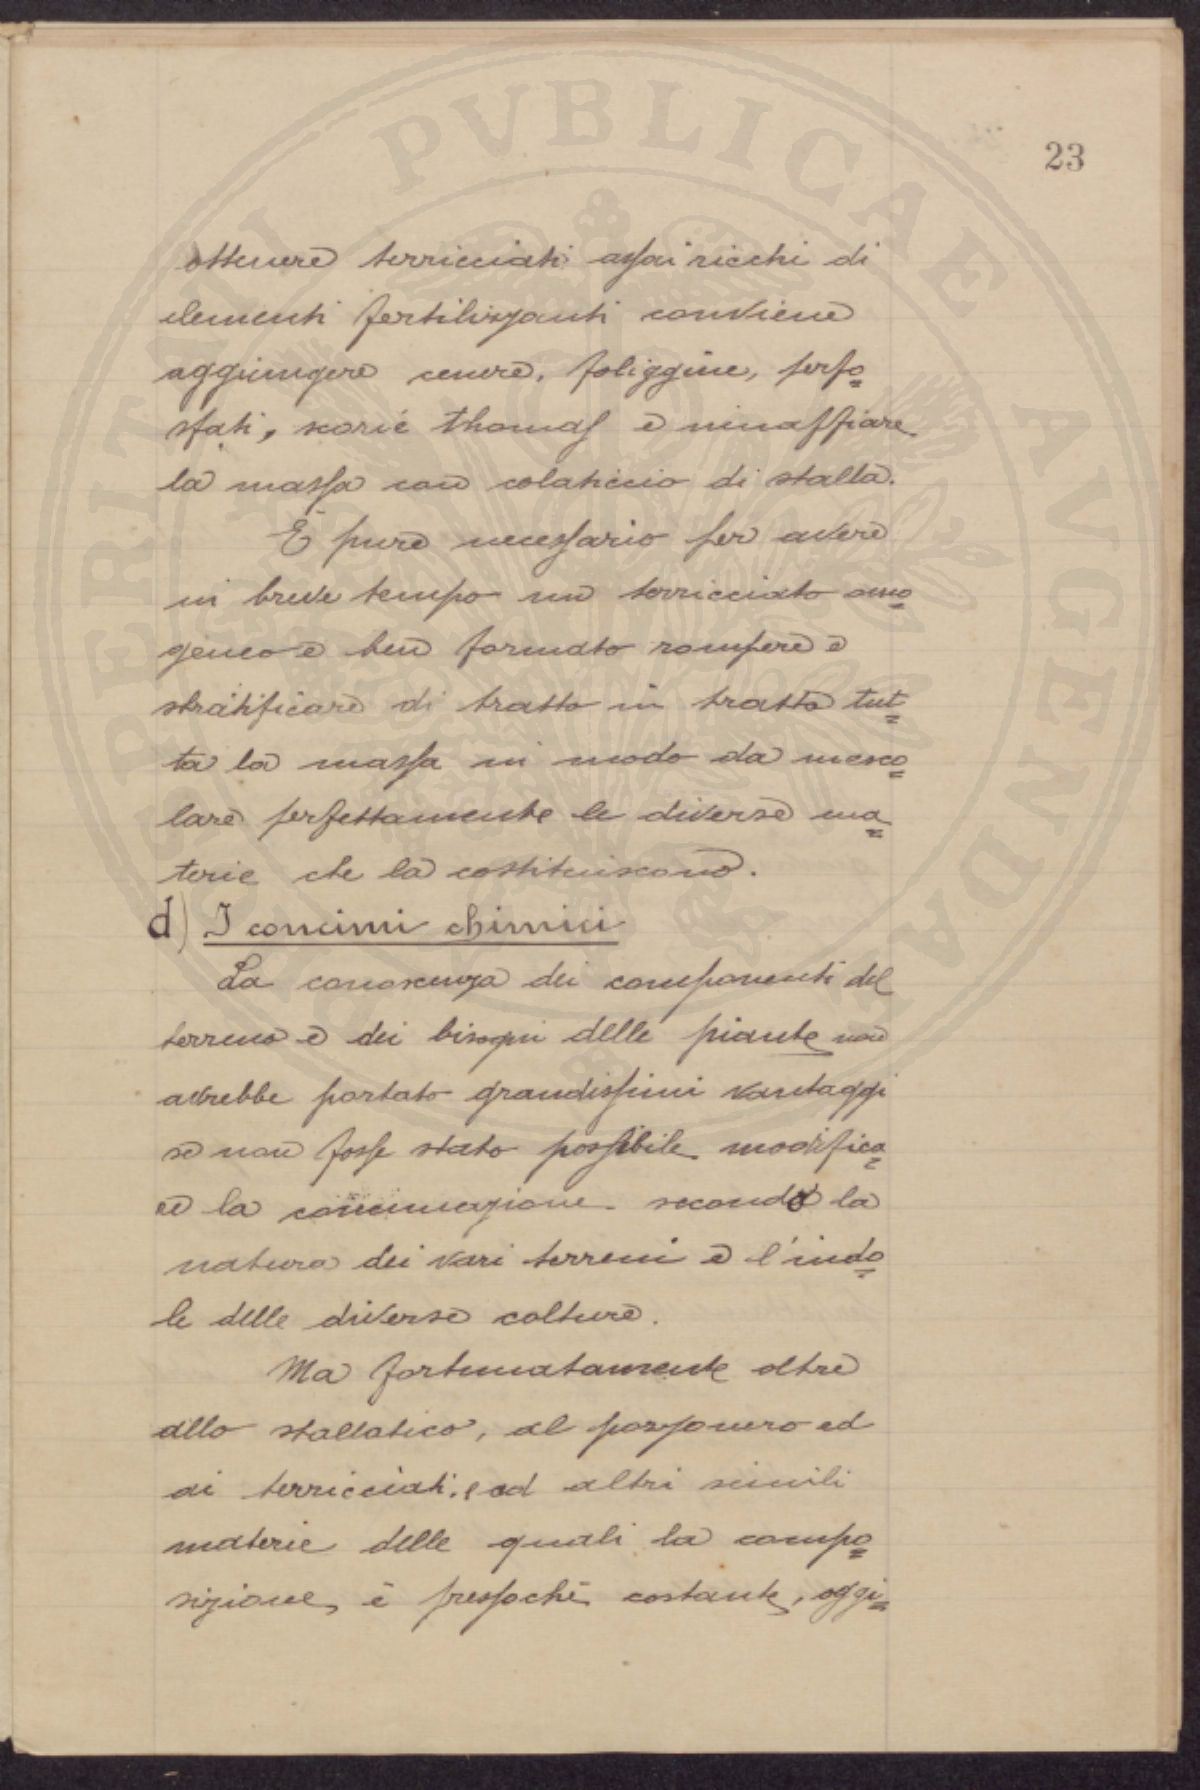 PROSPERITATI PVBLICAE AVGENDAE
23
ottenere terricciati assai ricchi di
elementi fertilizzanti conviene
aggiungere cenere, foliggine, perfo=
sfati, scorie Thomas e ninaffiare
la massa con colaticcio di stalla.
È pure necessario per avere
in breve tempo un terricciato omo=
geneo e ben formato rompere e
stratificare di tratto in tratto tut=
ta la massa in modo da mesco=
lare perfettamente le diverse ma=
terie che la costituiscono.
d) I concimi chimici
La conoscenza dei componenti del
terreno e dei bisogni delle piante non
avrebbe portato grandissimi vantaggi
se non fosse stato possibile modifica=
re la concimazione secondo la
natura dei vari terreni e l'indo=
le delle diverse colture.
Ma fortunatamente oltre
allo stallatico, al pozzonero ed
ai terricciati, ed altri simili
materie delle quali la compo=
sizione, è pressoché costante, oggi=